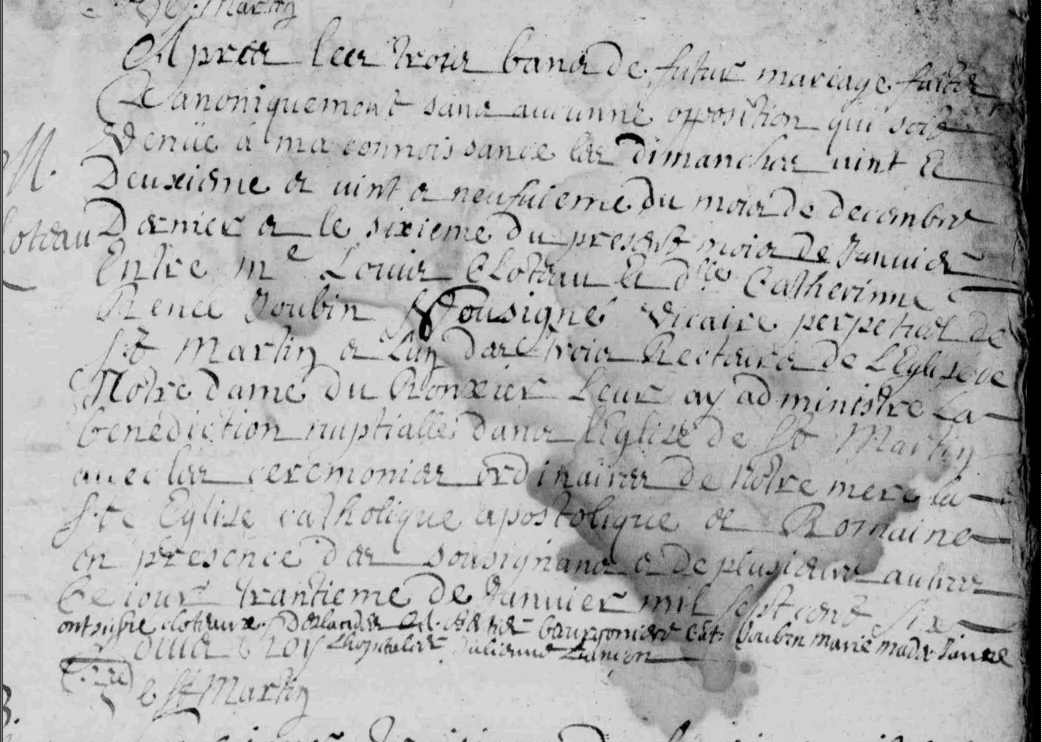 St Martin
Apres les trois bans de futur mariage faites
Canoniquement sans aucunne opposition qui soit
venüe a ma connoissance les dimanches vint et
M. Deuxiême et vint et neufuieme du mois de decembre
Cloteau Dernier et le sixieme du present mois de Januier
Entre me Louis Cloteau et dlle Catherinne
Renee Joubin Je sousigné vicaire perpetuel de
St Martin et l'un des trois Recteurs de L'Eglise de
Notre dame du Ronxier leur ay administré la
benediction nuptialle dans l'Eglise de St Martin
auec les ceremonies ordinaires de notre mere la
Ste Eglise catholique apostolique et Romaine
en presence des sousignans et de plusieurs autres
Ce jour trantieme de Januier mil sept cent six
ont signe cloteau Cat. Joubin marie
Julienne
St Martin